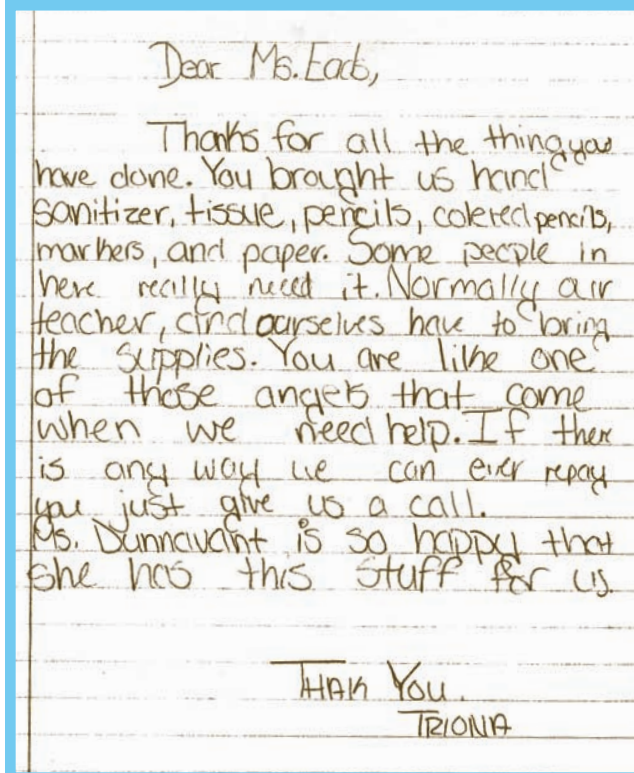 Dear Ms. Eads,
Thanks for all the thing you
have done. You brought us hand
sanitizer, tissue, pencils, colered pencils,
markers, and paper. Some people in
here really need it. Normally our
teacher, and ourselves have to bring
the supplies. You are like one
of those angels that come
when we need help. If there
is any way we can ever repay
you just give us a call.
Ms. Dunnavant is so happy that
she has this stuff for us.
THAK YOU.
TRIONA